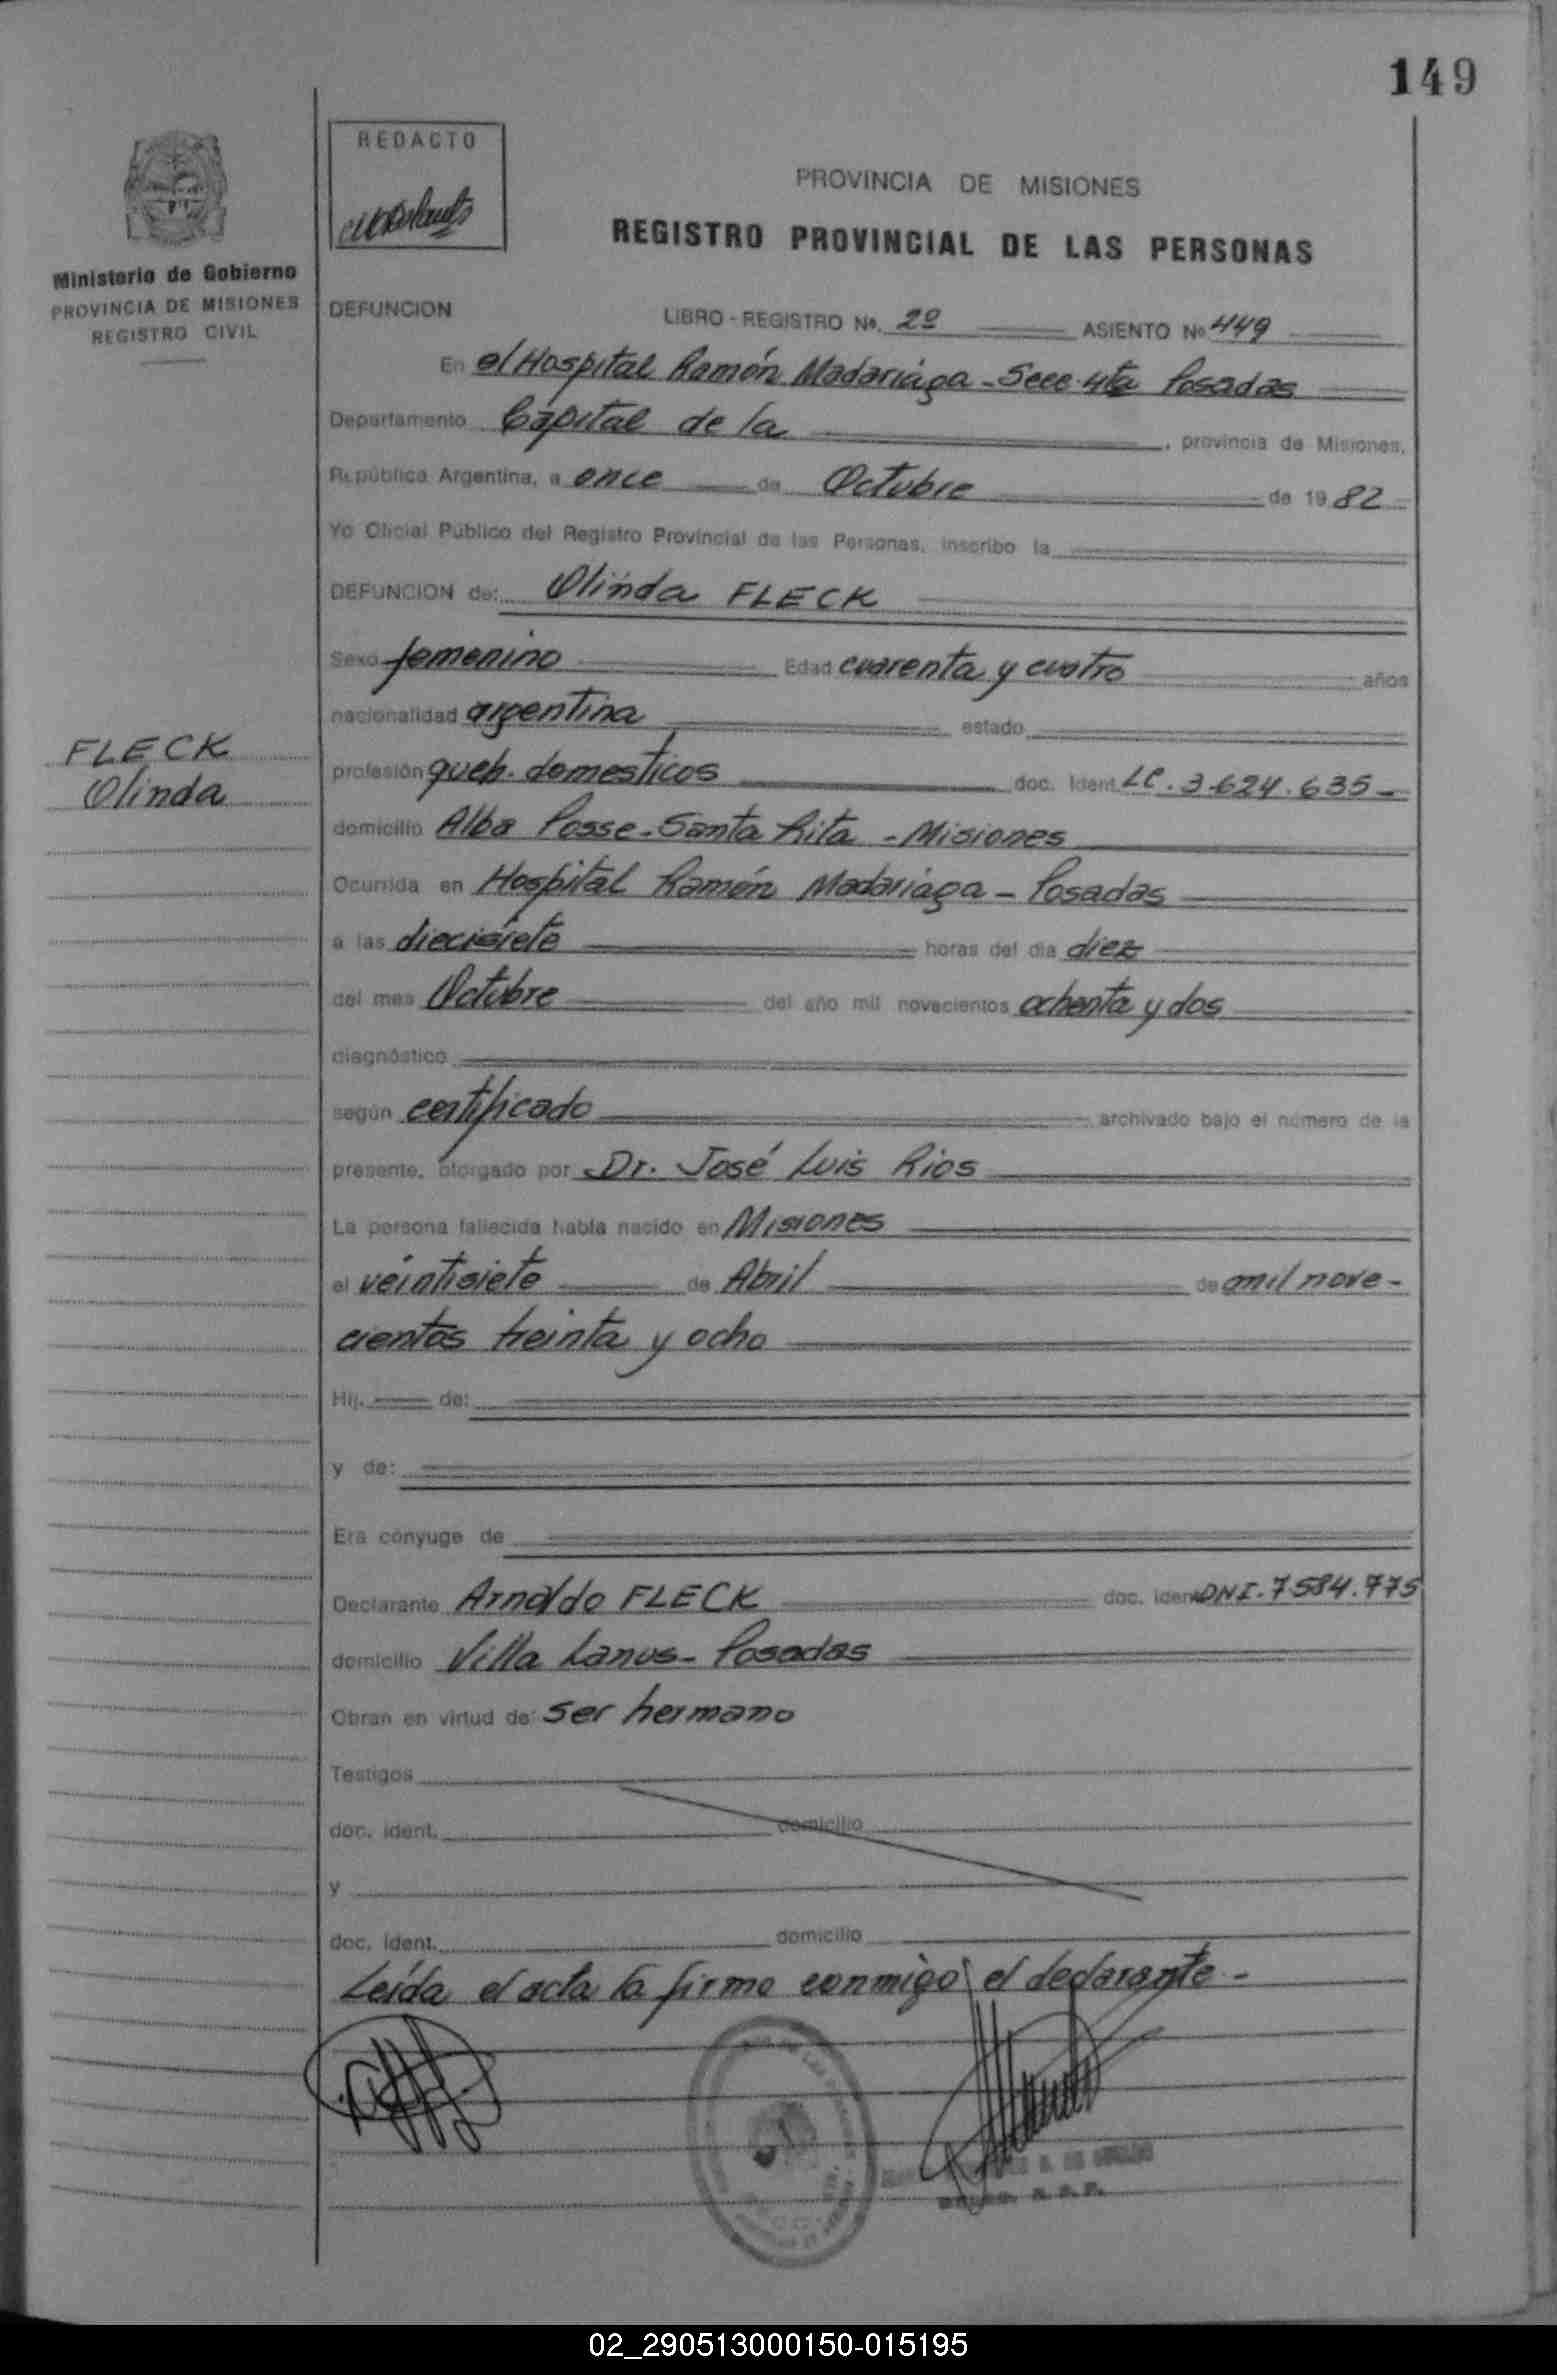 149
REDACTO
PROVINCIA DE MISIONES
REGISTRO PROVINCIAL DE LAS PERSONAS
Ministerio de Gobierno
PROVINCIA DE MISIONES
REGISTRO CIVIL
DEFUNCION LIBRO - REGISTRO Nº. 2º ASIENTO Nº 449
En el Hospital Ramón Madariaga - Secc. 4ta Posadas
Departamento Capital de la , provincia de Misiones,
República Argentina, a once de Octubre de 1982
Yo Oficial Público del Registro Provincial de las Personas, inscribo la
DEFUNCION de: Olinda FLECK
Sexo femenino Edad cuarenta y cuatro años
nacionalidad argentina estado
FLECK
Olinda
profesión queh. domesticos doc. Ident. LC. 3.624.635 -
domicilio Alba Posse - Santa Rita - Misiones
Ocurrida en Hospital Ramón Madariaga - Posadas
a las diecisiete horas del día diez
del mes Octubre del año mil novecientos ochenta y dos
diagnóstico
según certificado archivado bajo el número de la
presente, otorgado por Dr. José Luis Rios
La persona fallecida había nacido en Misiones
el veintisiete de Abril de mil nove-
cientos treinta y ocho
Hij. de:
y de:
Era cónyuge de
Declarante Arnoldo FLECK doc. ident DNI. 7.584.775
domicilio Villa Lanus - Posadas
Obran en virtud de: ser hermano
Testigos
doc. ident. domicilio
y
doc. ident. domicilio
Leída el acta la firma conmigo el declarante -
02_290513000150-015195